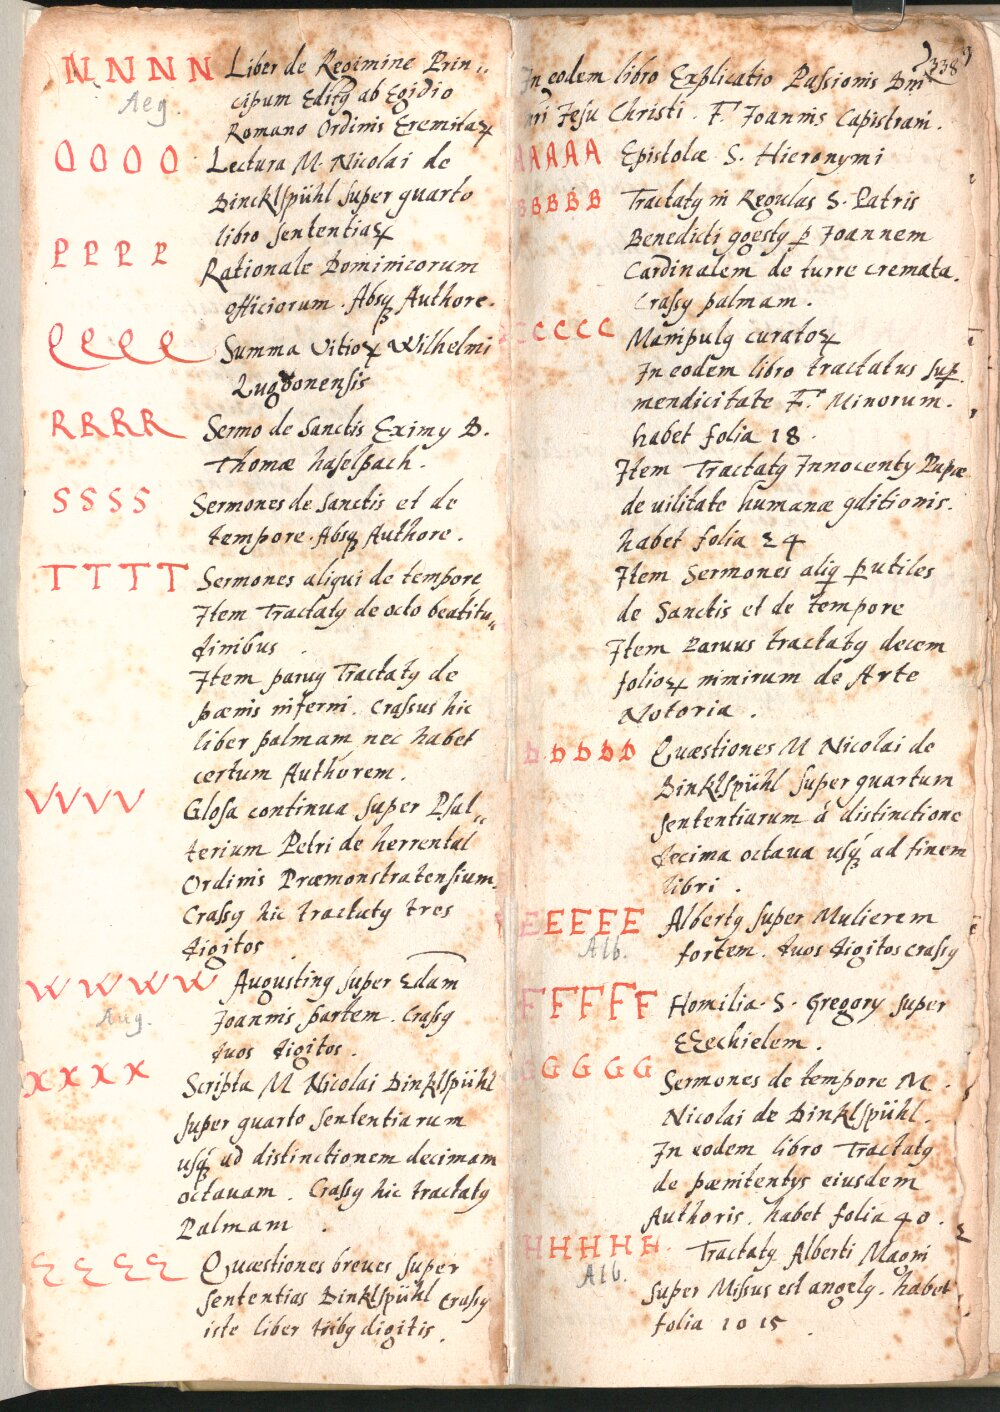 N N N N Liber de Regimine Prin„
Aeg. cipum Editꝰ ab Egidio
Romano Ordinis Eremitaꝝ
O O O O Lectura M. Nicolai de
Dincklspühl super quarto
libro sententiaꝝ
P P P P Rationale Dominicorum
officiorum. Absqꝫ Authore.
Q Q Q Q Summa vitioꝝ Wilhelmi
Lugdonensis
R R R R Sermo de Sanctis Eximy D.
Thomæ haselpach.
S S S S Sermones de Sanctis et de
tempore. Absqꝫ Authore.
T T T T Sermones aliqui de tempore
Item Tractatꝰ de octo beatitu„
dinibus.
Item paruꝰ Tractatꝰ de
pœnis inferni. Crassus hic
liber palmam nec habet
certum Authorem.
V V V V Glosa continua super Psal„
terium Petri de herrental
Ordinis Præmonstratensium.
Crassꝰ hic tractatꝰ tres
digitos
W W W W Augustinꝰ super 2dam
Aug. Joannis partem. Crassꝰ
duos digitos.
X X X X Scripta M Nicolai Dinklspühl
super quarto sententiarum
usqꝫ ad distinctionem decimam
octauam. Crassꝰ hic tractatꝰ
Palmam.
Z Z Z Z Quæstiones breues super
sententias Dinklspühl crassꝰ
iste liber tribꝰ digitis.
338
In eodem libro Explicatio Passionis Dni
nri Jesu Christi. F. Joannis Capistrani.
A A A A A Epistolæ S. Hieronymi
B B B B B Tractatꝰ in Regulas S. Patris
Benedicti ꝯgestꝰ ꝑ Joannem
Cardinalem de turre cremata.
Crassꝰ palmam.
C C C C C Manipulꝰ curatoꝝ
In eodem libro tractatus suꝑ
mendicitate F. Minorum.
habet folia 18.
Item Tractatꝰ Innocenty Papæ
de uilitate humanæ ꝯditionis.
habet folia 24
Item Sermones aliq ꝑutiles
de Sanctis et de tempore
Item Paruus tractatꝰ decem
folioꝝ nimirum de Arte
Notoria.
D D D D D Quæstiones M Nicolai de
Dinklspühl super quartum
sententiarum á distinctione
decima octaua usqꝫ ad finem
libri.
E E E E E Albertꝰ super Mulierem
Alb. fortem. duos digitos crassꝰ
F F F F F Homilia. S. Gregory super
EZechielem.
G G G G G Sermones de tempore M.
Nicolai de Dinklspühl.
In eodem libro Tractatꝰ
de pœnitentys eiusdem
Authoris. habet folia 40.
H H H H H Tractatꝰ Alberti Magni
Alb. super Missus est angelꝰ. habet
folia 1015